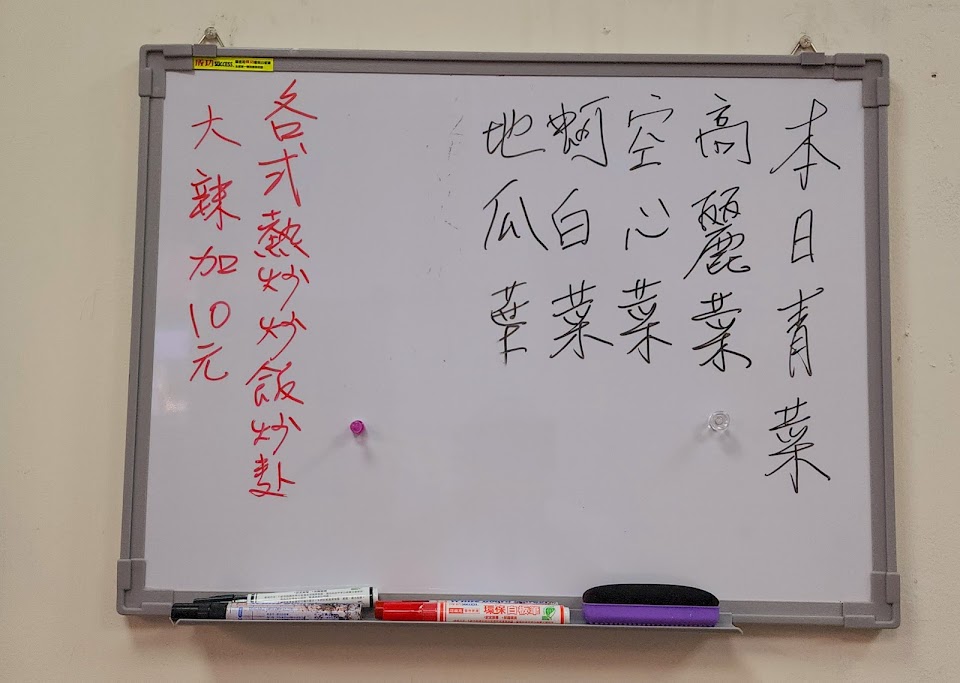 本日青菜
高麗菜
空心菜
蚵白菜
地瓜葉
各式熱炒炒飯炒麵
大辣加10元
成功 SUCCESS
環保白板筆